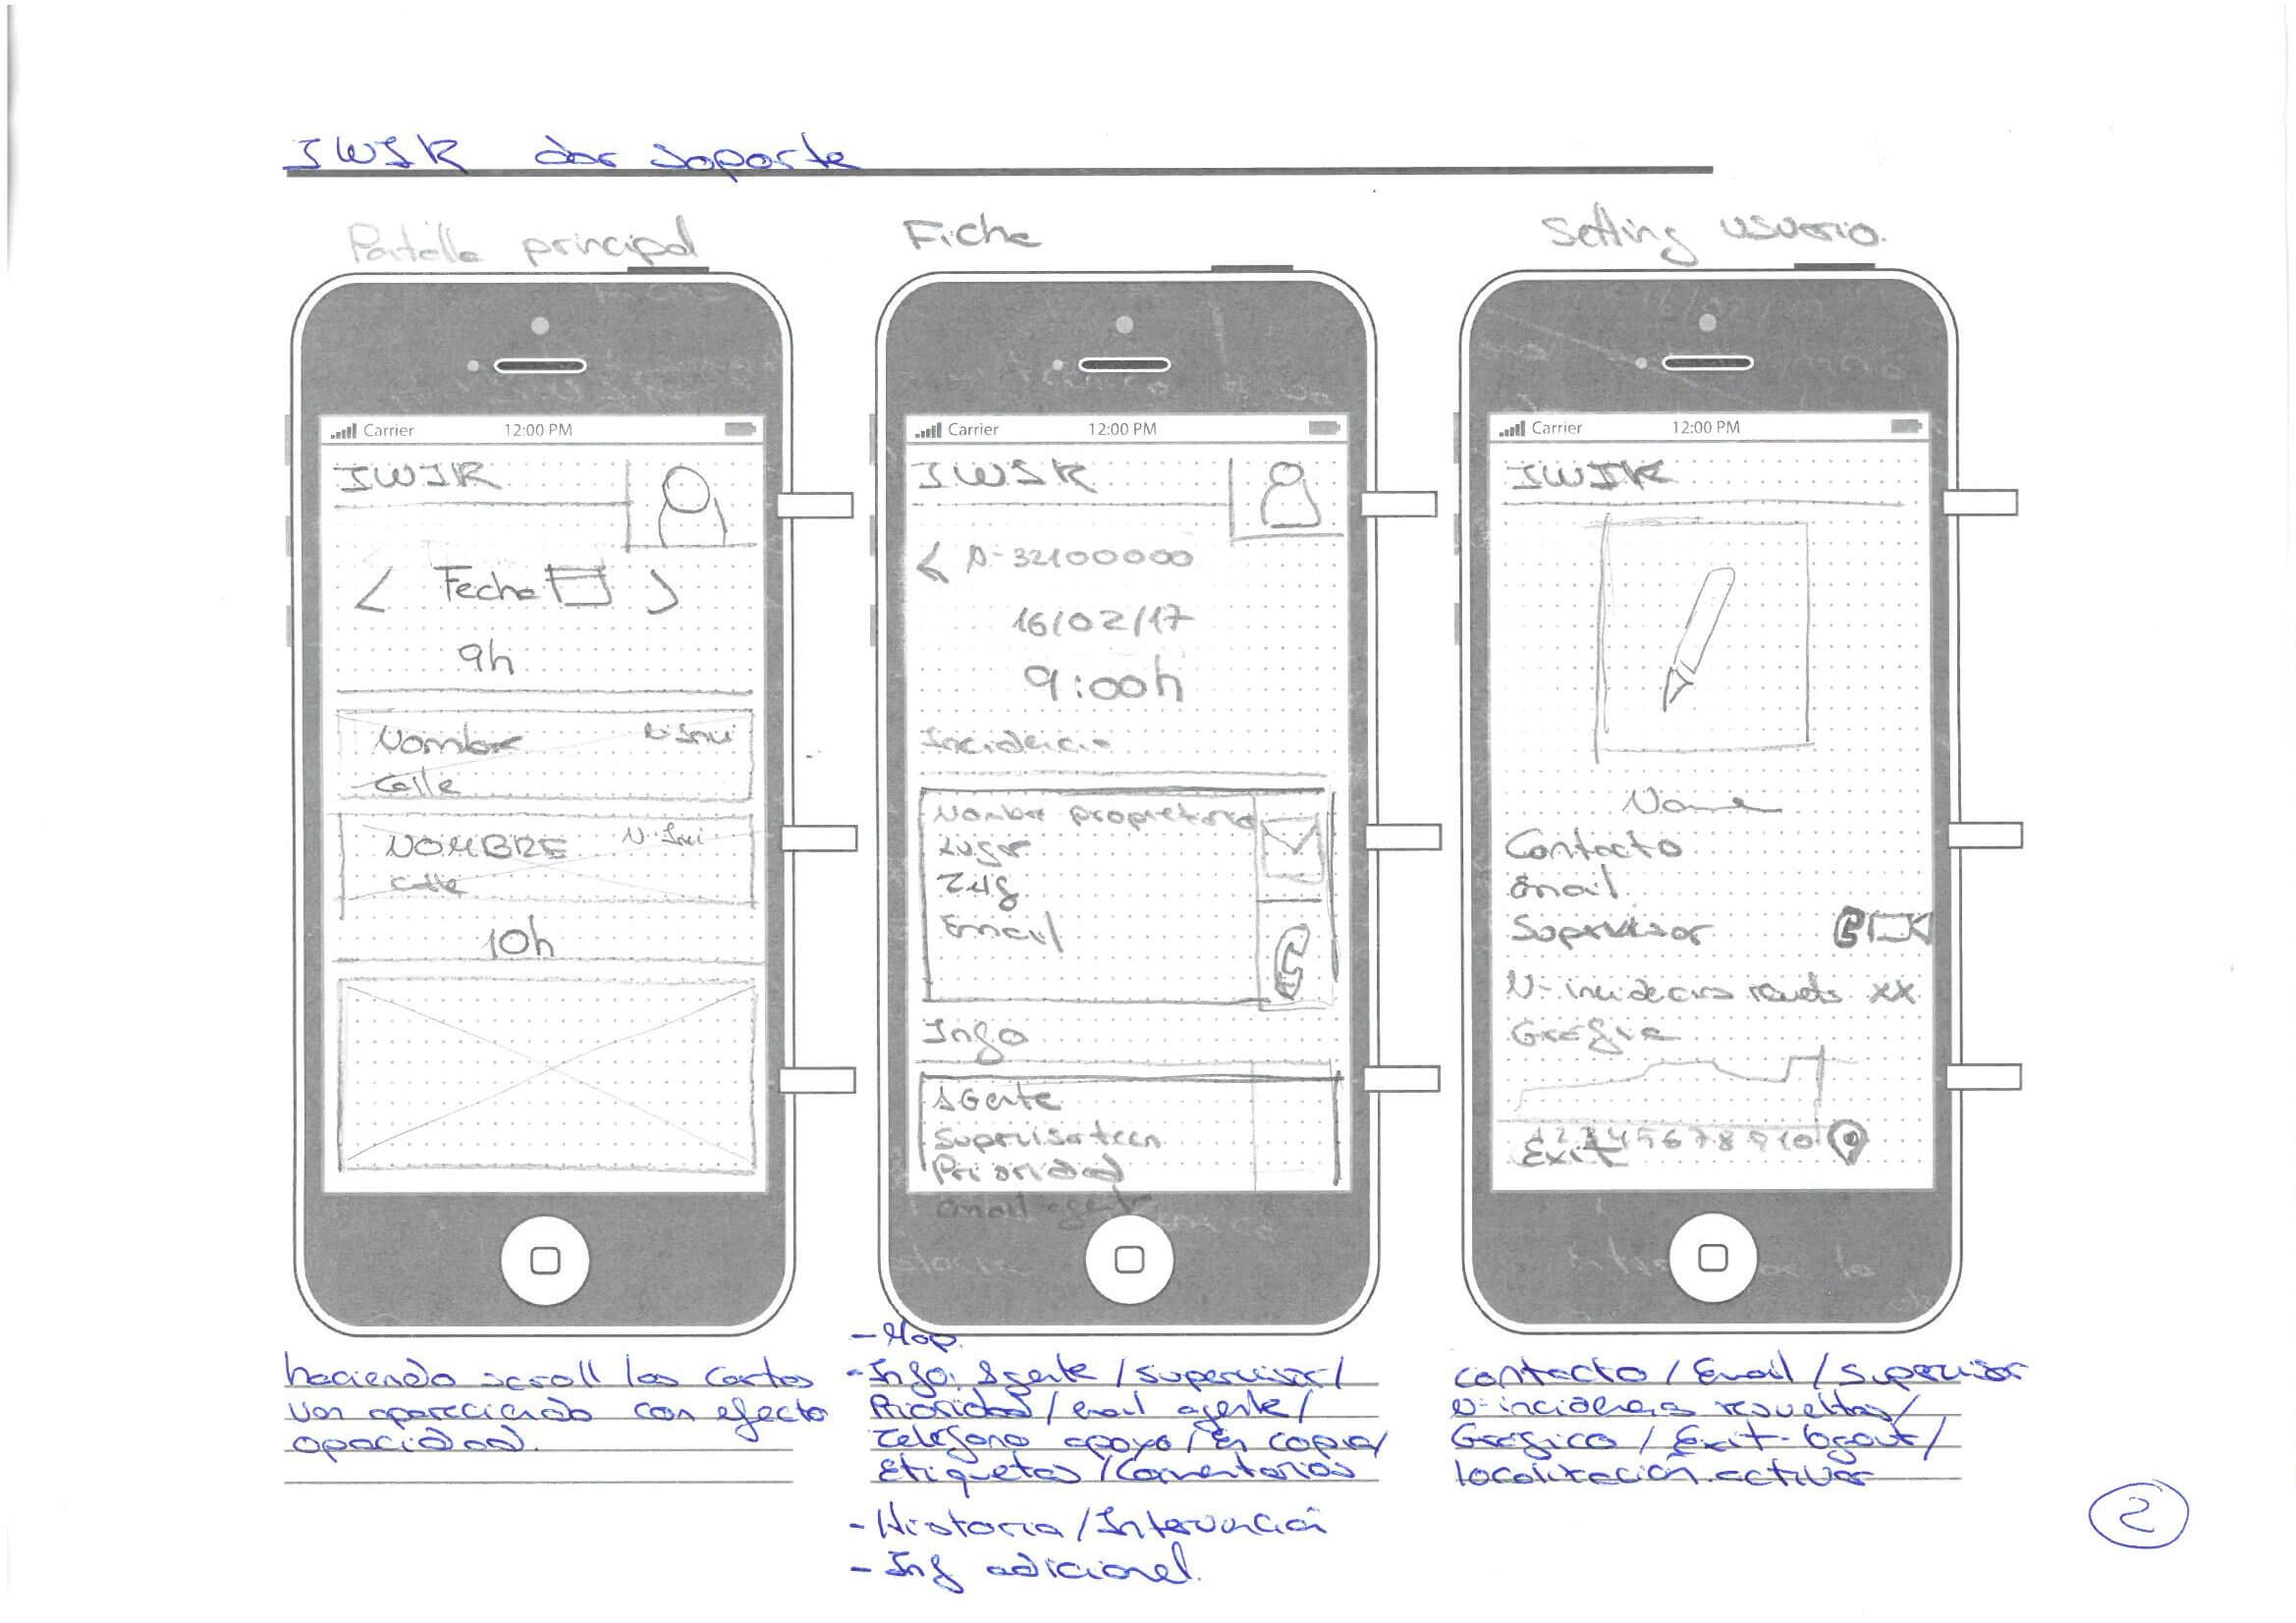 IWIK dar soporte
Pantalla principal
Carrier 12:00 PM
IWIK
< Fecha >
9h
Nombre
Calle
NOMBRE
Calle
10h
haciendo scroll las cartas
van apareciendo con efecto
opacidad.
Ficha
Carrier 12:00 PM
IWIK
< A-32100000
16/02/17
9:00h
Incidencia
Nombre propietario
Lugar
Email
Info
AGente
Supervisor tecn
Prioridad
email agente
- Map.
- Info: Agente / supervisor /
Prioridad / email agente /
Teléfono apoyo / En copia /
Etiquetas / Comentarios
- Historia / Intervención
- Inf adicional.
Setting usuario.
Carrier 12:00 PM
IWIK
Name
Contacto
Email
Supervisor
N- incidencias xx
Grafica
1 2 3 4 5 6 7 8 9 10
Exit
contacto / Email / Supervisor
N- incidencias resueltas /
Grafico / Exit-logout /
localización activar
2